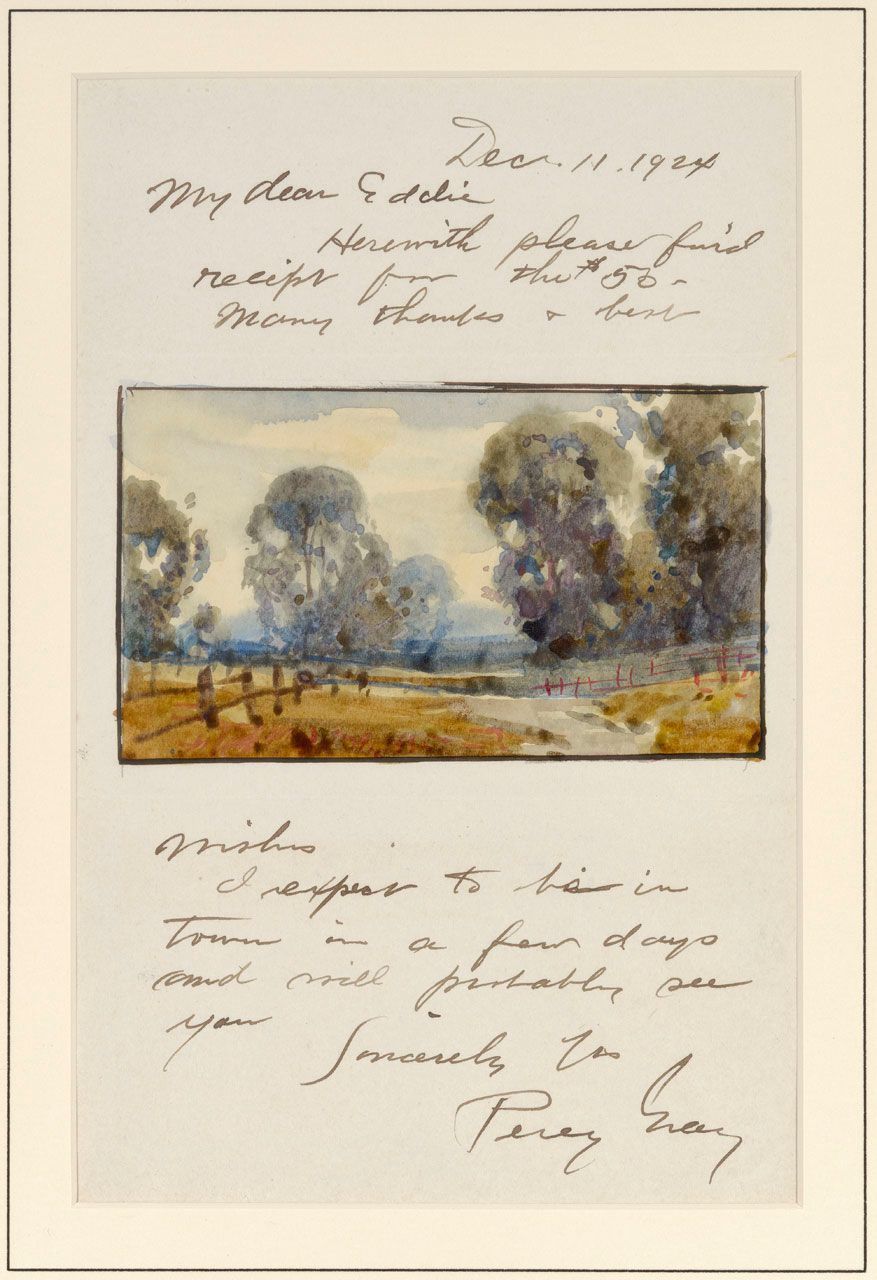 Dec. 11. 1924
My dear Eddie
Herewith please find
recipt for the $50-
Many thanks & best
wishes
I expect to be in
town in a few days
and will probably see
you
Sincerely Yrs
Percy Gray